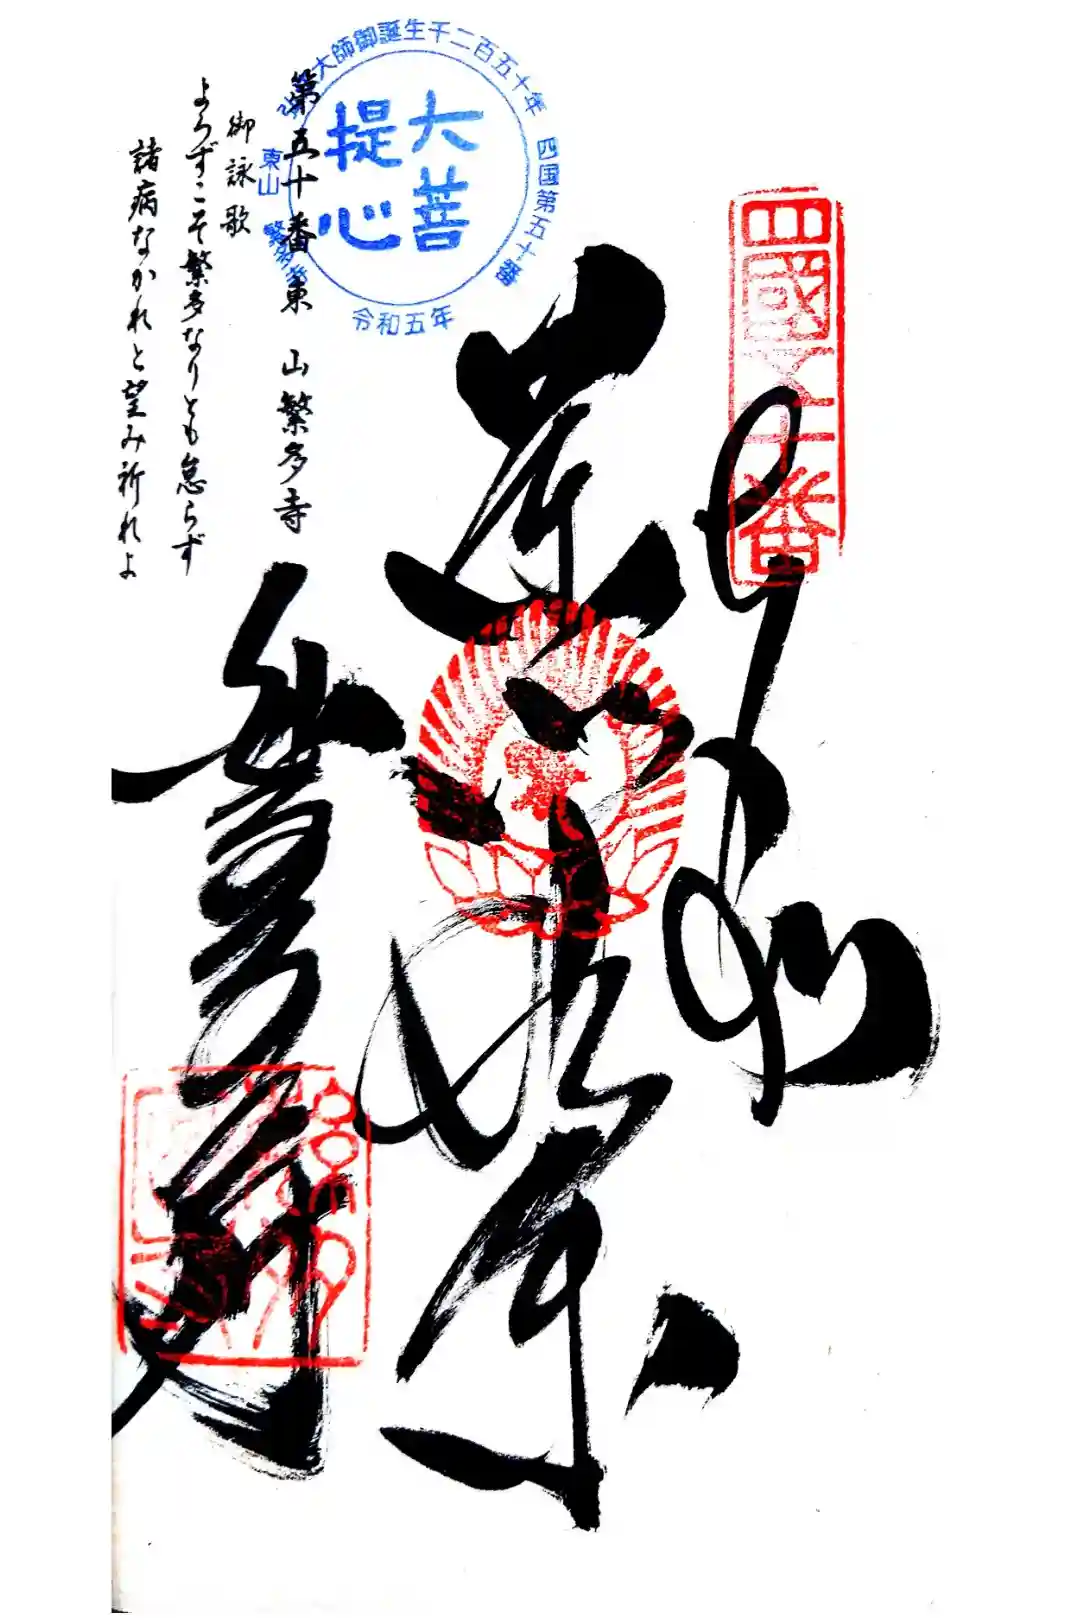 四國五十番
奉納
薬師如来
繁多寺
大善提心
大師御誕生千二百五十年
四国第五十番
東山 繁多寺
令和五年
第五十番東山繁多寺
御詠歌
よろずこそ繁多なりとも怠らず
諸病なかれと望み祈れよ